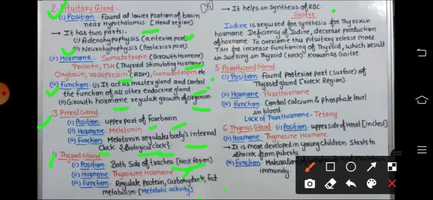 2. Pituitary Gland
(i) Position: Found at lower portion of brain
near Hypothalamus (Head region)
→ It has two parts:
(i) Adenohypophysis (Anterior part)
(ii) Neurohypophysis (Posterior part)
(ii) Hormone: Somatotropin (Growth hormone)
Prolactin, TSH
Oxytocin, Vasopressin (ADH),
(iii) Function: (i) It act as master gland and control
the function of all other endocrine gland
(ii) Growth hormone regulate growth of organism
3 Pineal Gland
(i) Position: upper part of forebrain
(ii) Hormone: Melatonin
(iii) Function: Melatonin regulates body's internal
Clock (Biological clock)
4 Thyroid Gland
(i) Position: Both side of trachea (Neck Region)
(ii) Hormone: Thyroxine Hormone
(iii) Function: Regulate Protein, Carbohydrate, fat
metabolism (Metabolic activity)
→ It helps in Synthesis of RBC
Goitre
Iodine is required for synthesis for Thyroxin
hormone. Deficiency of Iodine, decrease production
of hormone. To overcome this pituitary release more
TSH for increase functioning of Thyroid, which result
in swelling in Thyroid (neck) known as Goitre
5 Parathyroid Gland
(i) Position: Found Posterior part (surface) of
Thyroid gland (Neck Region)
(ii) Hormone: Parathormone
(iii) Function: Control Calcium & Phosphate level
in blood
Lack of Parathormone - Tetany
6 Thymus Gland (i) Position: upper side of heart (chest)
(ii) Hormone: Thymosine Hormone
→ It is more developed in young children. Starts to
shrink from puberty
(iii) Function:
immunity